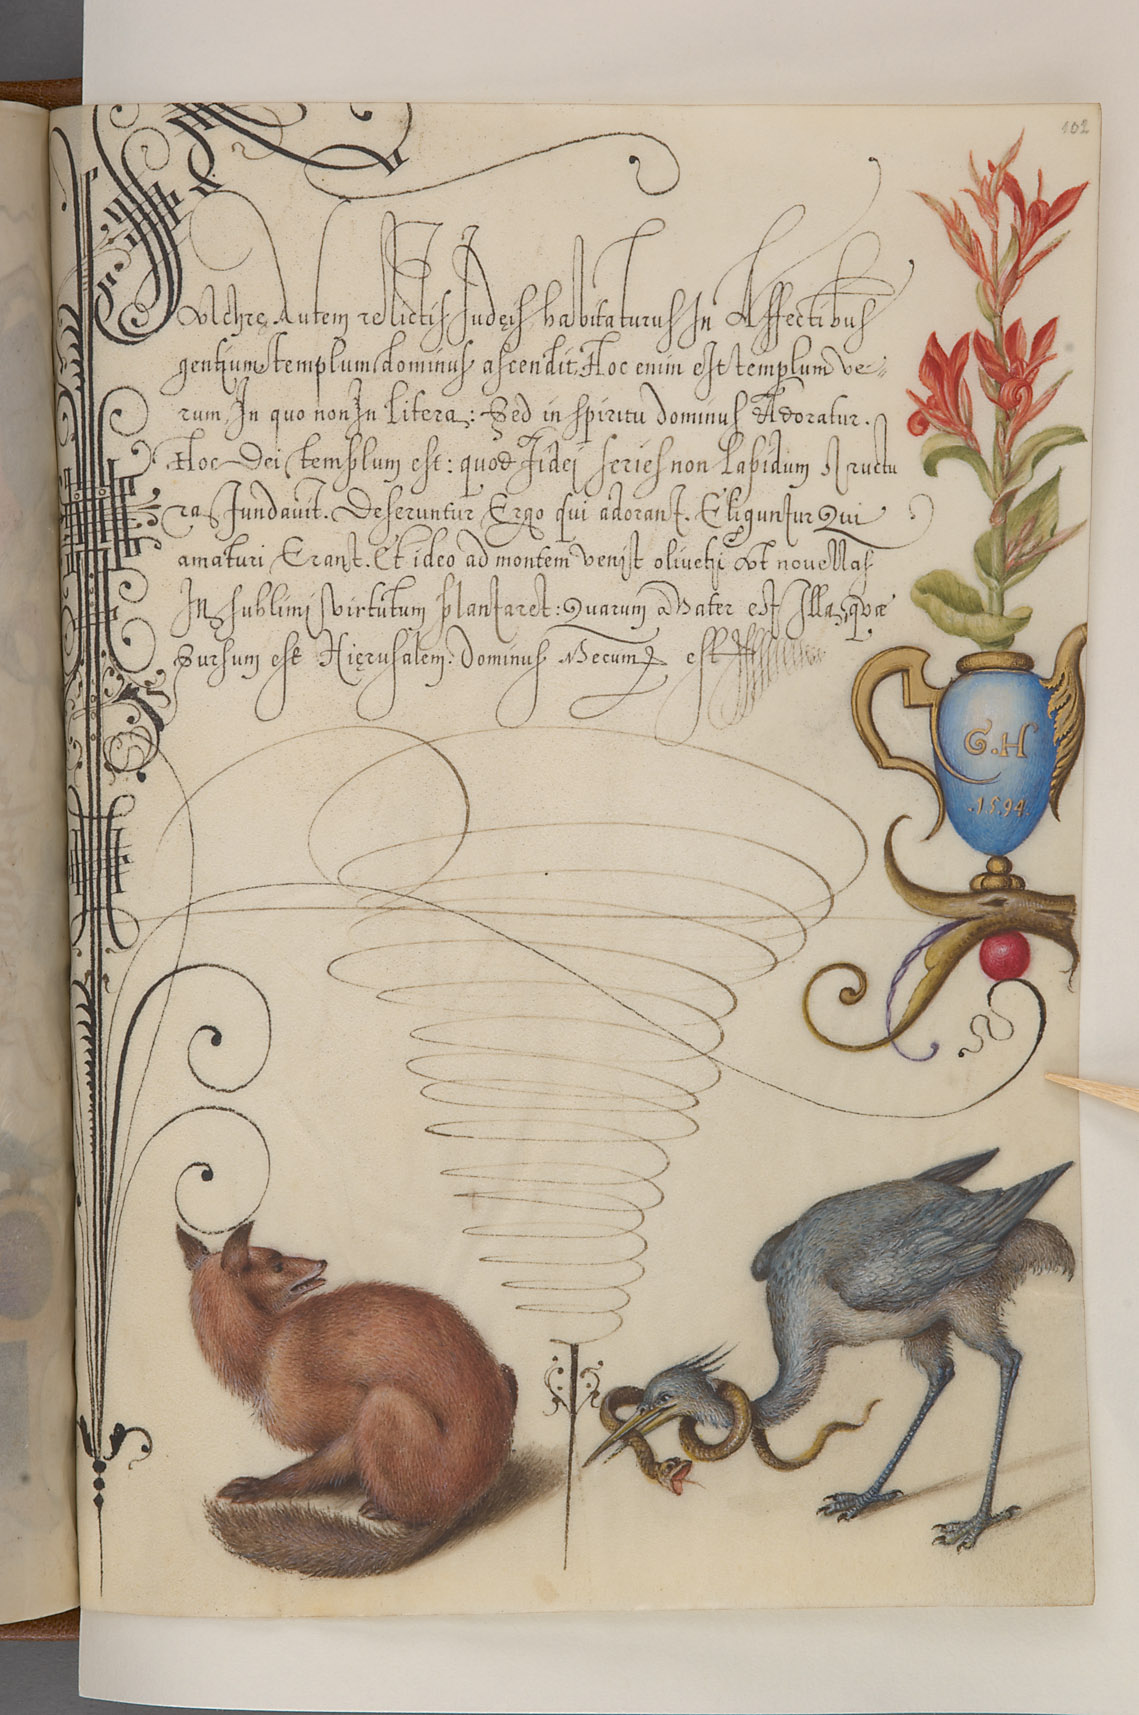 102
Pulchre Autem relictis Judęis habitaturus In Affectibus
gentium templum dominus ascendit. Hoc enim est templum ve-
rum In quo non In litera: Sed in spiritu dominus Adoratur.
Hoc Dei templum est: quod Fidei series non lapidum structu
ra fundavit. Deseruntur Ergo qui adorant. Eliguntur Qui
amaturi Erant. Et ideo ad montem venit oliveti Vt novellas
In sublimi virtutum plantaret: Quarum Mater est Illa, quæ
Sursum est Hierusalem. Dominus Mecum est
G.H
.1594.